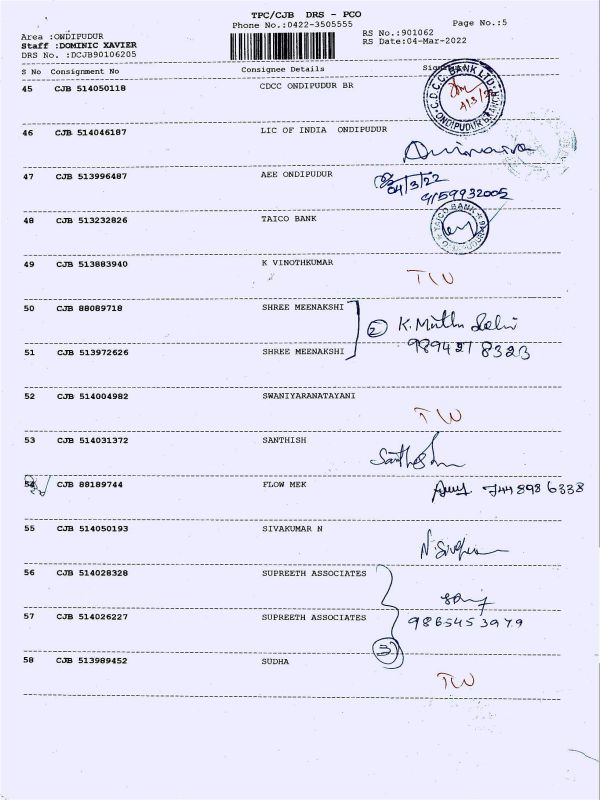 TPC/CJB DRS - PCO
Phone No.:0422-3505555 Page No.:5
Area :ONDIPUDUR RS No.:901062
Staff :DOMINIC XAVIER RS Date:04-Mar-2022
DRS No. :DCJB90106205
S No Consignment No Consignee Details
45 CJB 514050118 CDCC ONDIPUDUR BR
C.D.C.C. BANK LTD. ONDIPUDUR BRANCH
4/3/22
46 CJB 514046187 LIC OF INDIA ONDIPUDUR
47 CJB 513996487 AEE ONDIPUDUR
04/3/22
9159932005
48 CJB 513232826 TAICO BANK
TAICO BANK
49 CJB 513883940 K VINOTHKUMAR
TW
50 CJB 88089718 SHREE MEENAKSHI
2 K. Muthu Selvi
51 CJB 513972626 SHREE MEENAKSHI
9894218323
52 CJB 514004982 SWANIYARANATAYANI
TW
53 CJB 514031372 SANTHISH
54 CJB 88189744 FLOW MEK
7448986338
55 CJB 514050193 SIVAKUMAR N
56 CJB 514028328 SUPREETH ASSOCIATES
57 CJB 514026227 SUPREETH ASSOCIATES
9865453979
3
58 CJB 513989452 SUDHA
TW